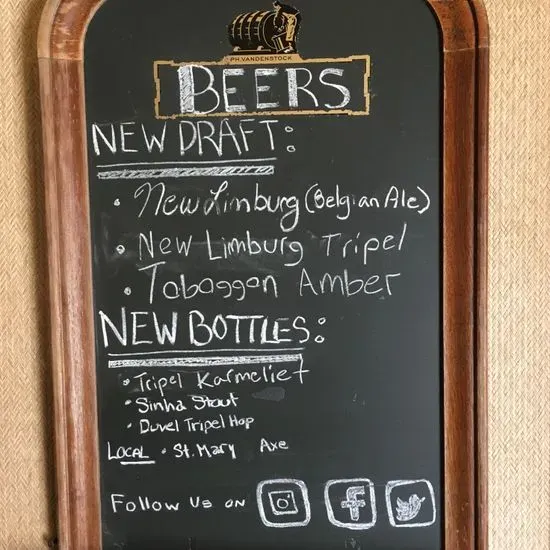 PH.VANDENSTOCK
BEERS
NEW DRAFT:
• New Limburg (Belgian Ale)
• New Limburg Tripel
• Toboggan Amber
NEW BOTTLES:
• Tripel Karmeliet
• Sinha Stout
• Duvel Tripel Hop
LOCAL • St. Mary Axe
Follow Us on